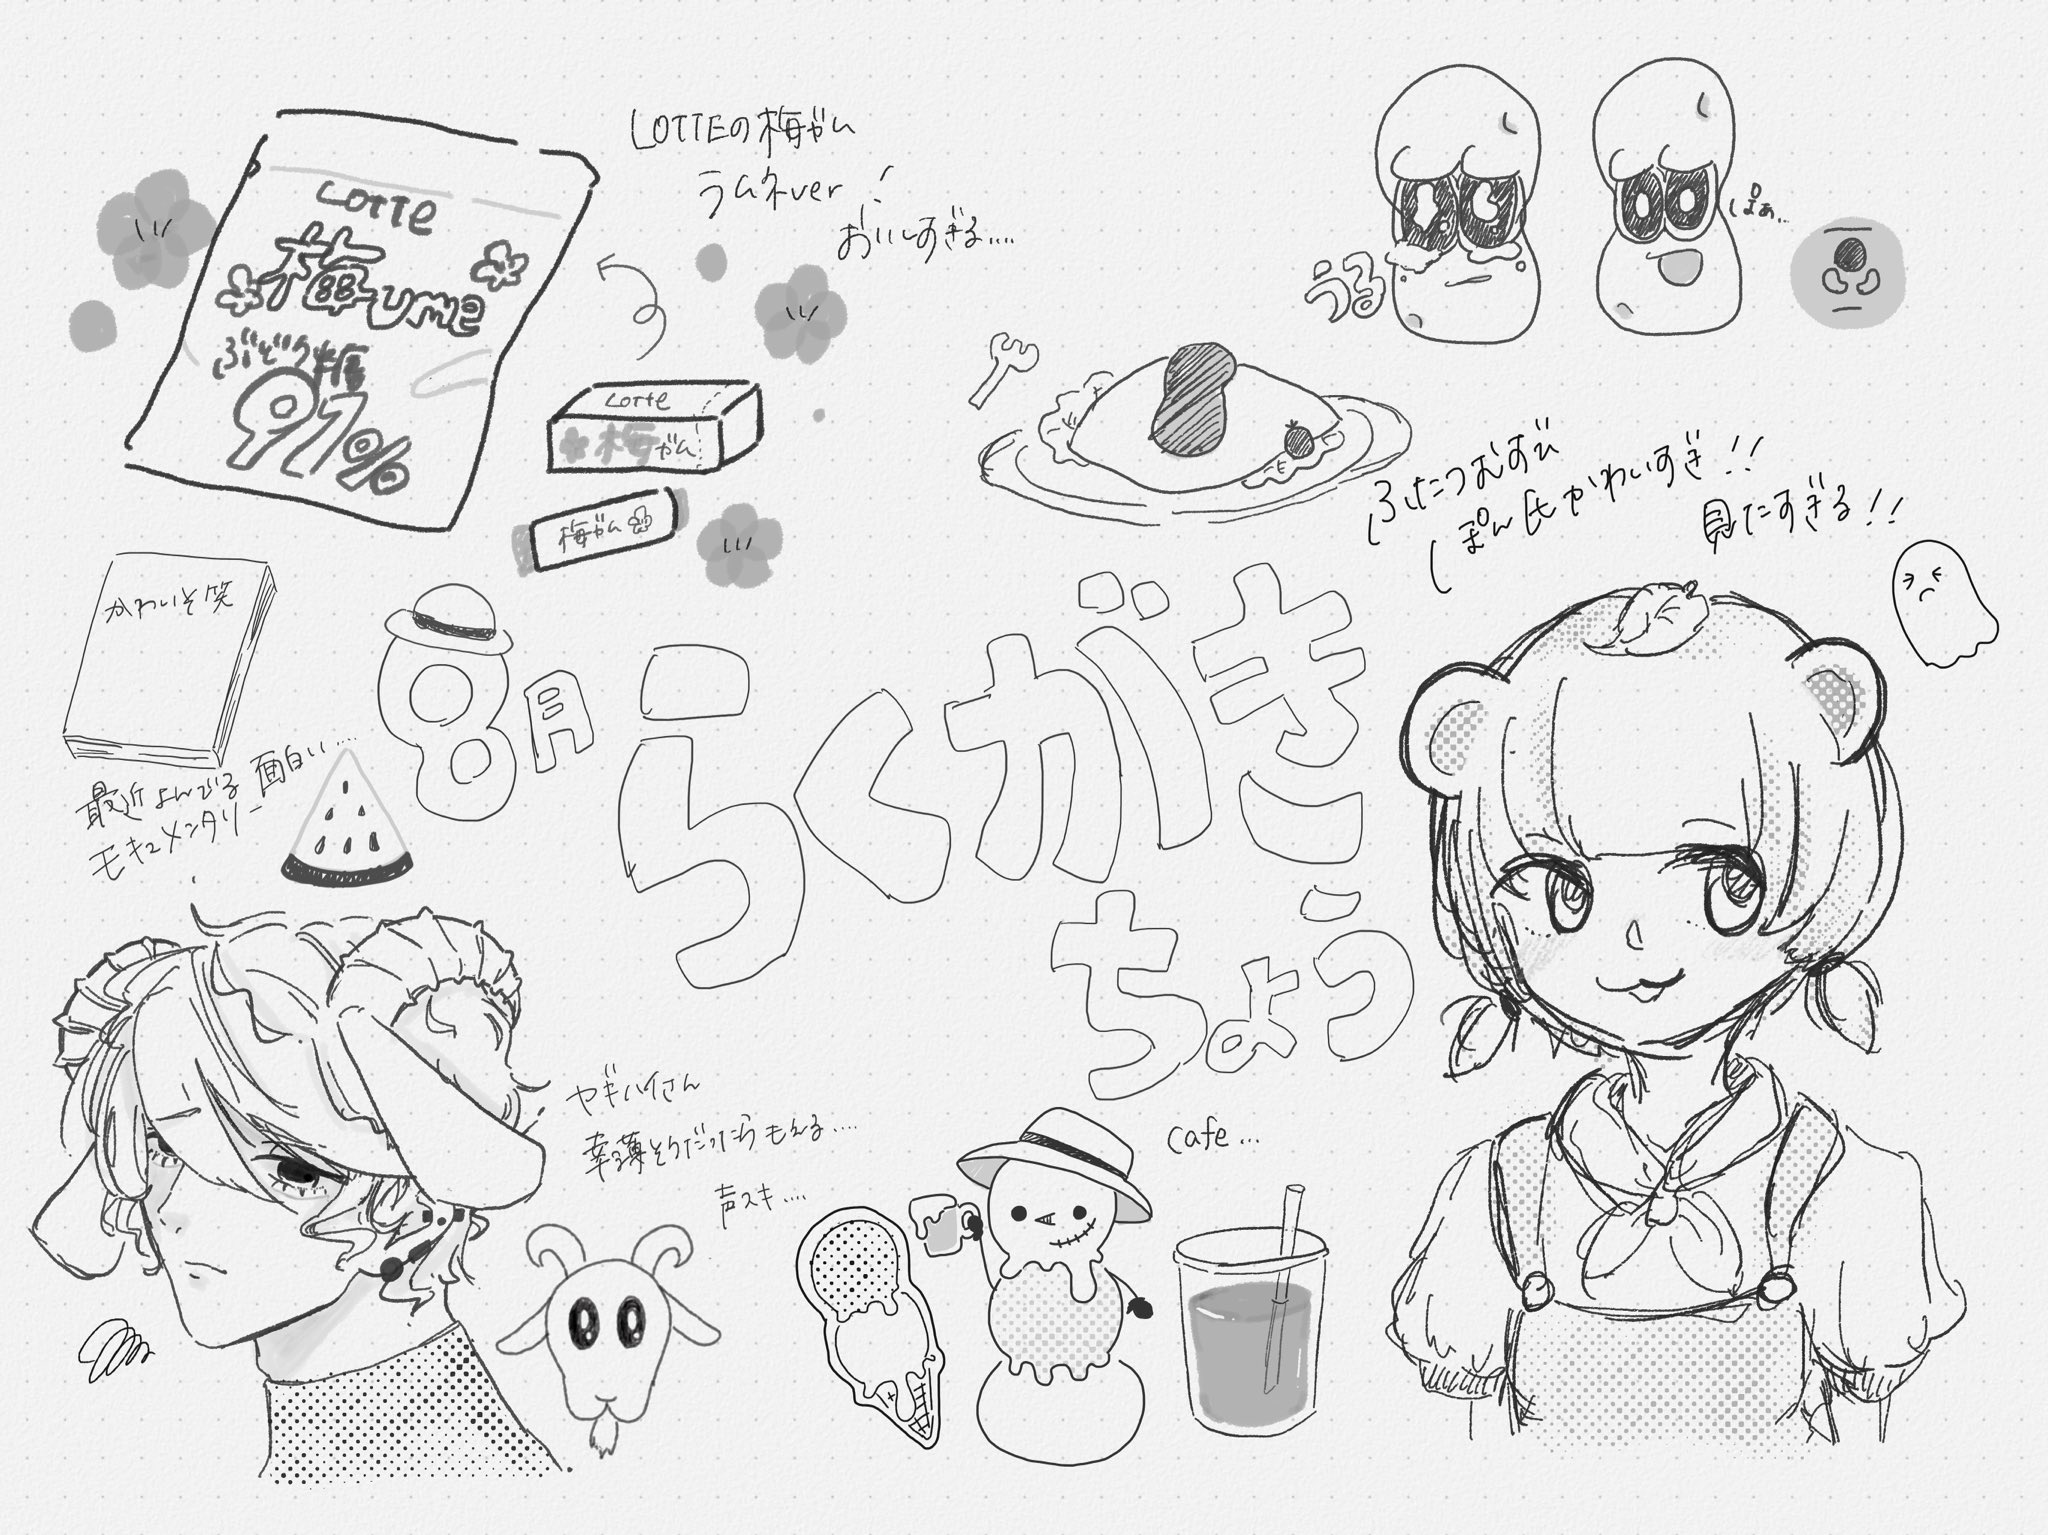 LOTTEの梅ガム
ラムネver!
おいしすぎる....
LOTTE
Ume
ぶどう糖
97%
Lotte
梅ガム
梅ガム
うる
ぱぁ...
ふたつむすび
ぽん氏かわいすぎ!!
見たすぎる!!
かわいそ笑
最近よんでる 面白い....
モキュメンタリー
8月
らくがき
ちょう
ヤギハイさん
幸薄そうだったらもえる....
声スキ....
cafe...